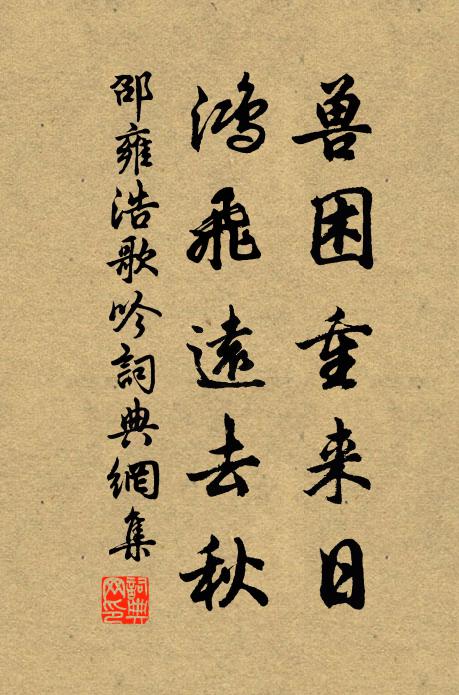 兽困重来日
鸿飛遠去秋
邵雍浩歌吟詞典網集
詞典网印